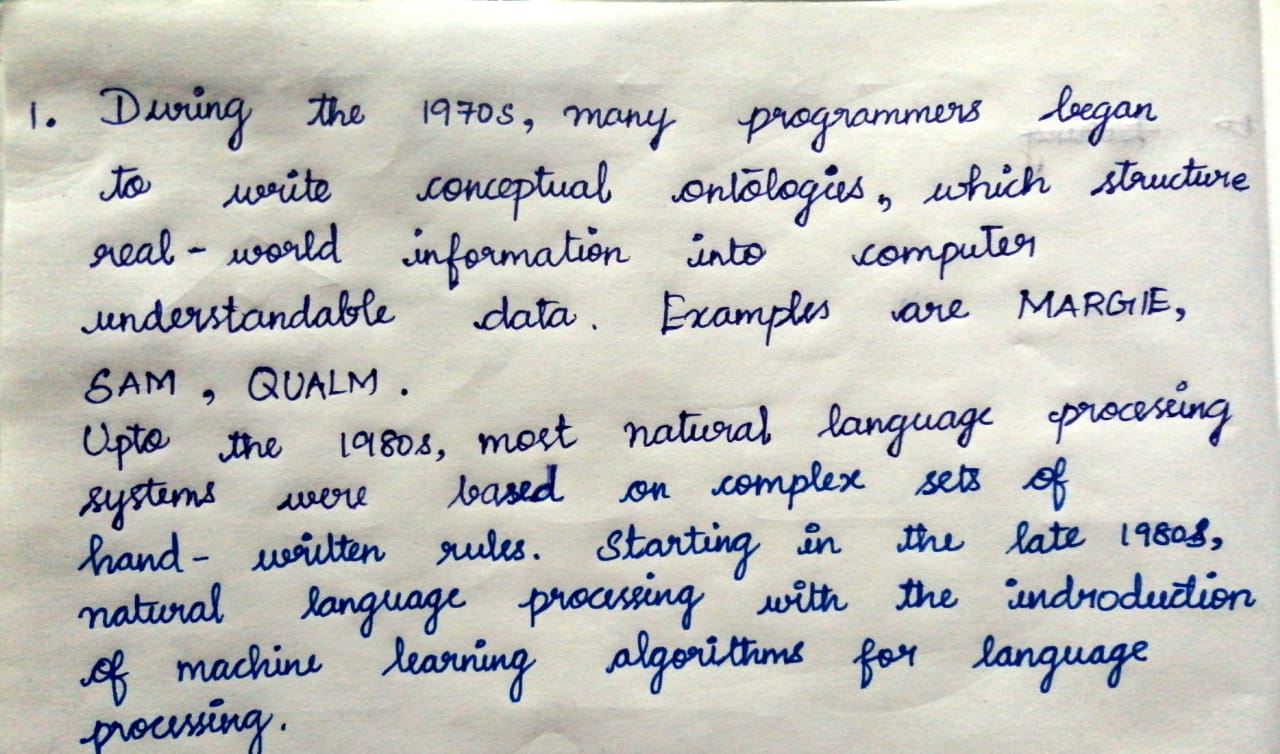 1. During the 1970s, many programmers began
to write conceptual ontologies, which structure
real-world information into computer
understandable data. Examples are MARGIE,
SAM, QUALM.
Upto the 1980s, most natural language processing
systems were based on complex sets of
hand-written rules. Starting in the late 1980s,
natural language processing with the indroduction
of machine learning algorithms for language
processing.